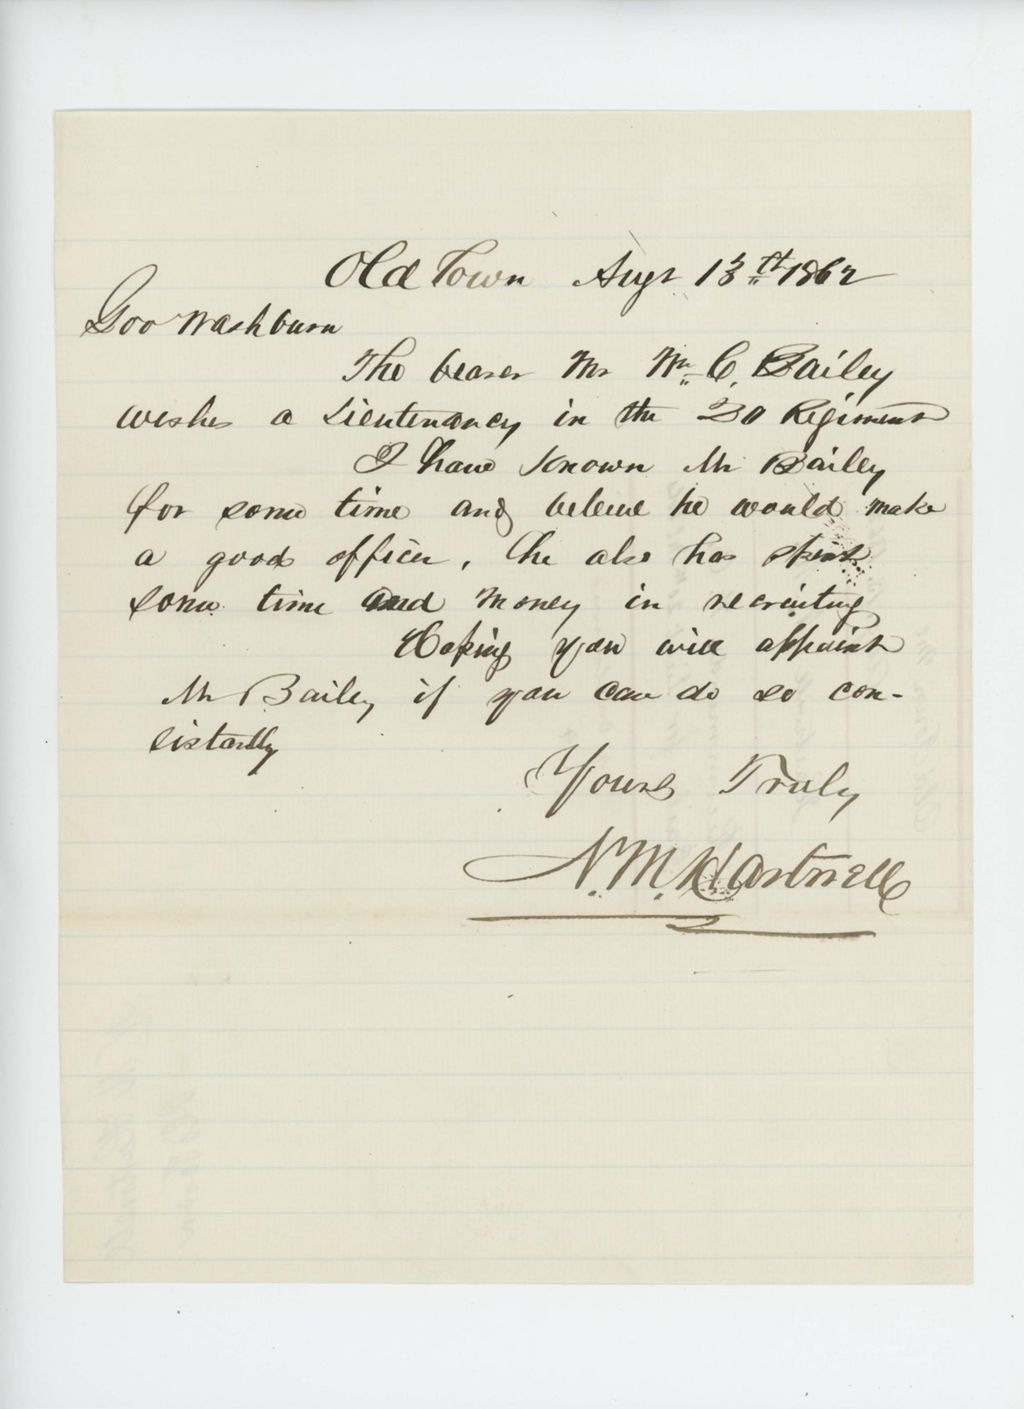 Old Town Augt 13th 1862
Gov Washburn
The bearer Mr Wm C. Bailey
wishes a Lieutenancy in the 20 Regiment
I have known Mr Bailey
for some time and beleive he would make
a good officer, he also has spent
some time and money in recruiting
Hoping you will appoint
Mr Bailey if you can do so con-
sistantly
Yours Truly
N. M. Hartwell